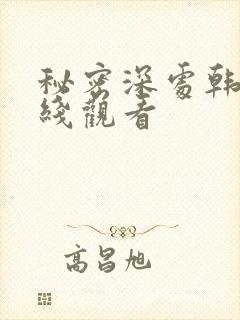 秘密深處韩
綫觀看
高昌旭